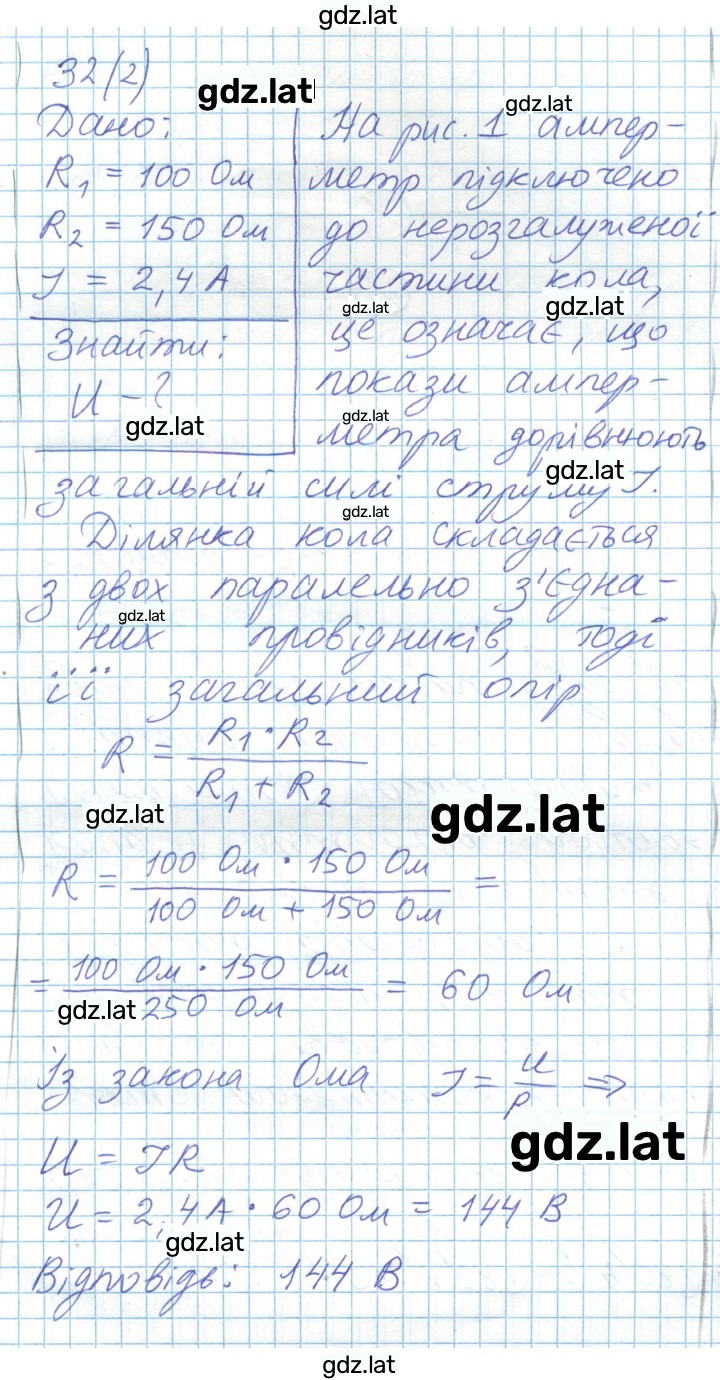 gdz.lat
32(2)
gdz.lat
Дано:
R₁ = 100 Ом
R₂ = 150 Ом
I = 2,4 А
Знайти:
U - ?
gdz.lat
gdz.lat
На рис. 1 ампер-
метр підключено
до нерозгалуженої
частини кола,
gdz.lat
gdz.lat
це означає, що
покази ампер-
gdz.lat
метра дорівнюють
gdz.lat
загальній силі струму I.
gdz.lat
Ділянка кола складається
з двох паралельно з'єдна-
gdz.lat
них провідників, тоді
її загальний опір
R = R₁ · R₂ / R₁ + R₂
gdz.lat
gdz.lat
R = 100 Ом · 150 Ом / 100 Ом + 150 Ом =
= 100 Ом · 150 Ом / 250 Ом = 60 Ом
gdz.lat
Із закона Ома I = U / R ⇒
gdz.lat
U = IR
U = 2,4 А · 60 Ом = 144 В
gdz.lat
Відповідь: 144 В
gdz.lat